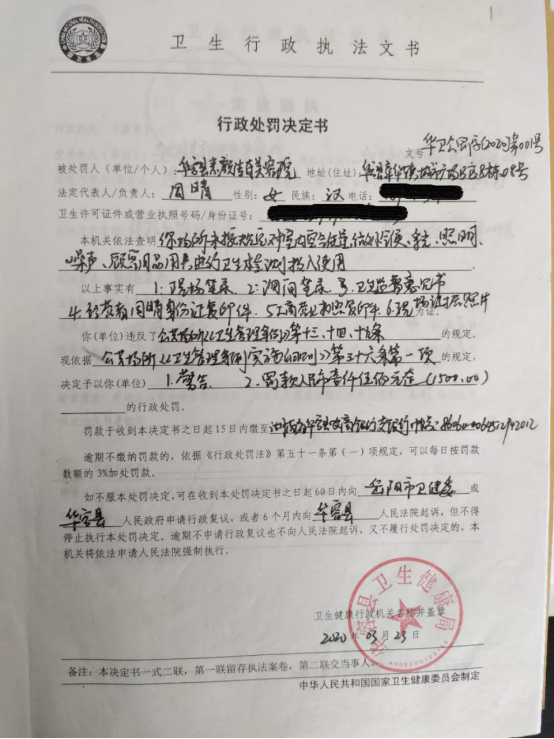 1
卫生行政执法文书
行政处罚决定书
文号 华卫公罚字(2020)第001号
被处罚人(单位/个人): 华容县 美容院 地址(住址): 华容县章华镇 08号
法定代表人/负责人: 周晴 性别: 女 民族: 汉 电话:
卫生许可证件或营业执照号码/身份证号:
本机关依法查明 你场所未按规定对室内空气 照明、
噪声、顾客用品用具进行卫生检测投入使用
以上事实有 1.现场笔录 2.询问笔录 3.卫生监督意见书
4. 周晴身份证复印件 5.工商营业执照复印件 6.现场 照片 为证。
你(单位)违反了 公共场所《卫生管理条例》第十三、十四、十 条 的规定。
现依据 公共场所《卫生管理条例实施细则》第三十六条第一项 的规定,
决定予以你(单位) 1.警告 2.罚款人民币壹仟伍佰元在 (1500.00)
的行政处罚。
罚款于收到本决定书之日起15日内缴至 华容
逾期不缴纳罚款的,依据《行政处罚法》第五十一条第(一)项规定,可以每日按罚款
数额的3%加处罚款。
如不服本处罚决定,可在收到本处罚决定书之日起60日内向 岳阳市卫健委 或
华容县 人民政府申请行政复议,或者6个月内向 华容县 人民法院起诉,但不得
停止执行本处罚决定。逾期不申请行政复议也不向人民法院起诉,又不履行处罚决定的,本
机关将依法申请人民法院强制执行。
华容县卫生健康局
卫生健康行政机关名称并盖章
2020年03月23日
备注:本决定书一式二联,第一联留存执法案卷,第二联交当事人。
中华人民共和国国家卫生健康委员会制定